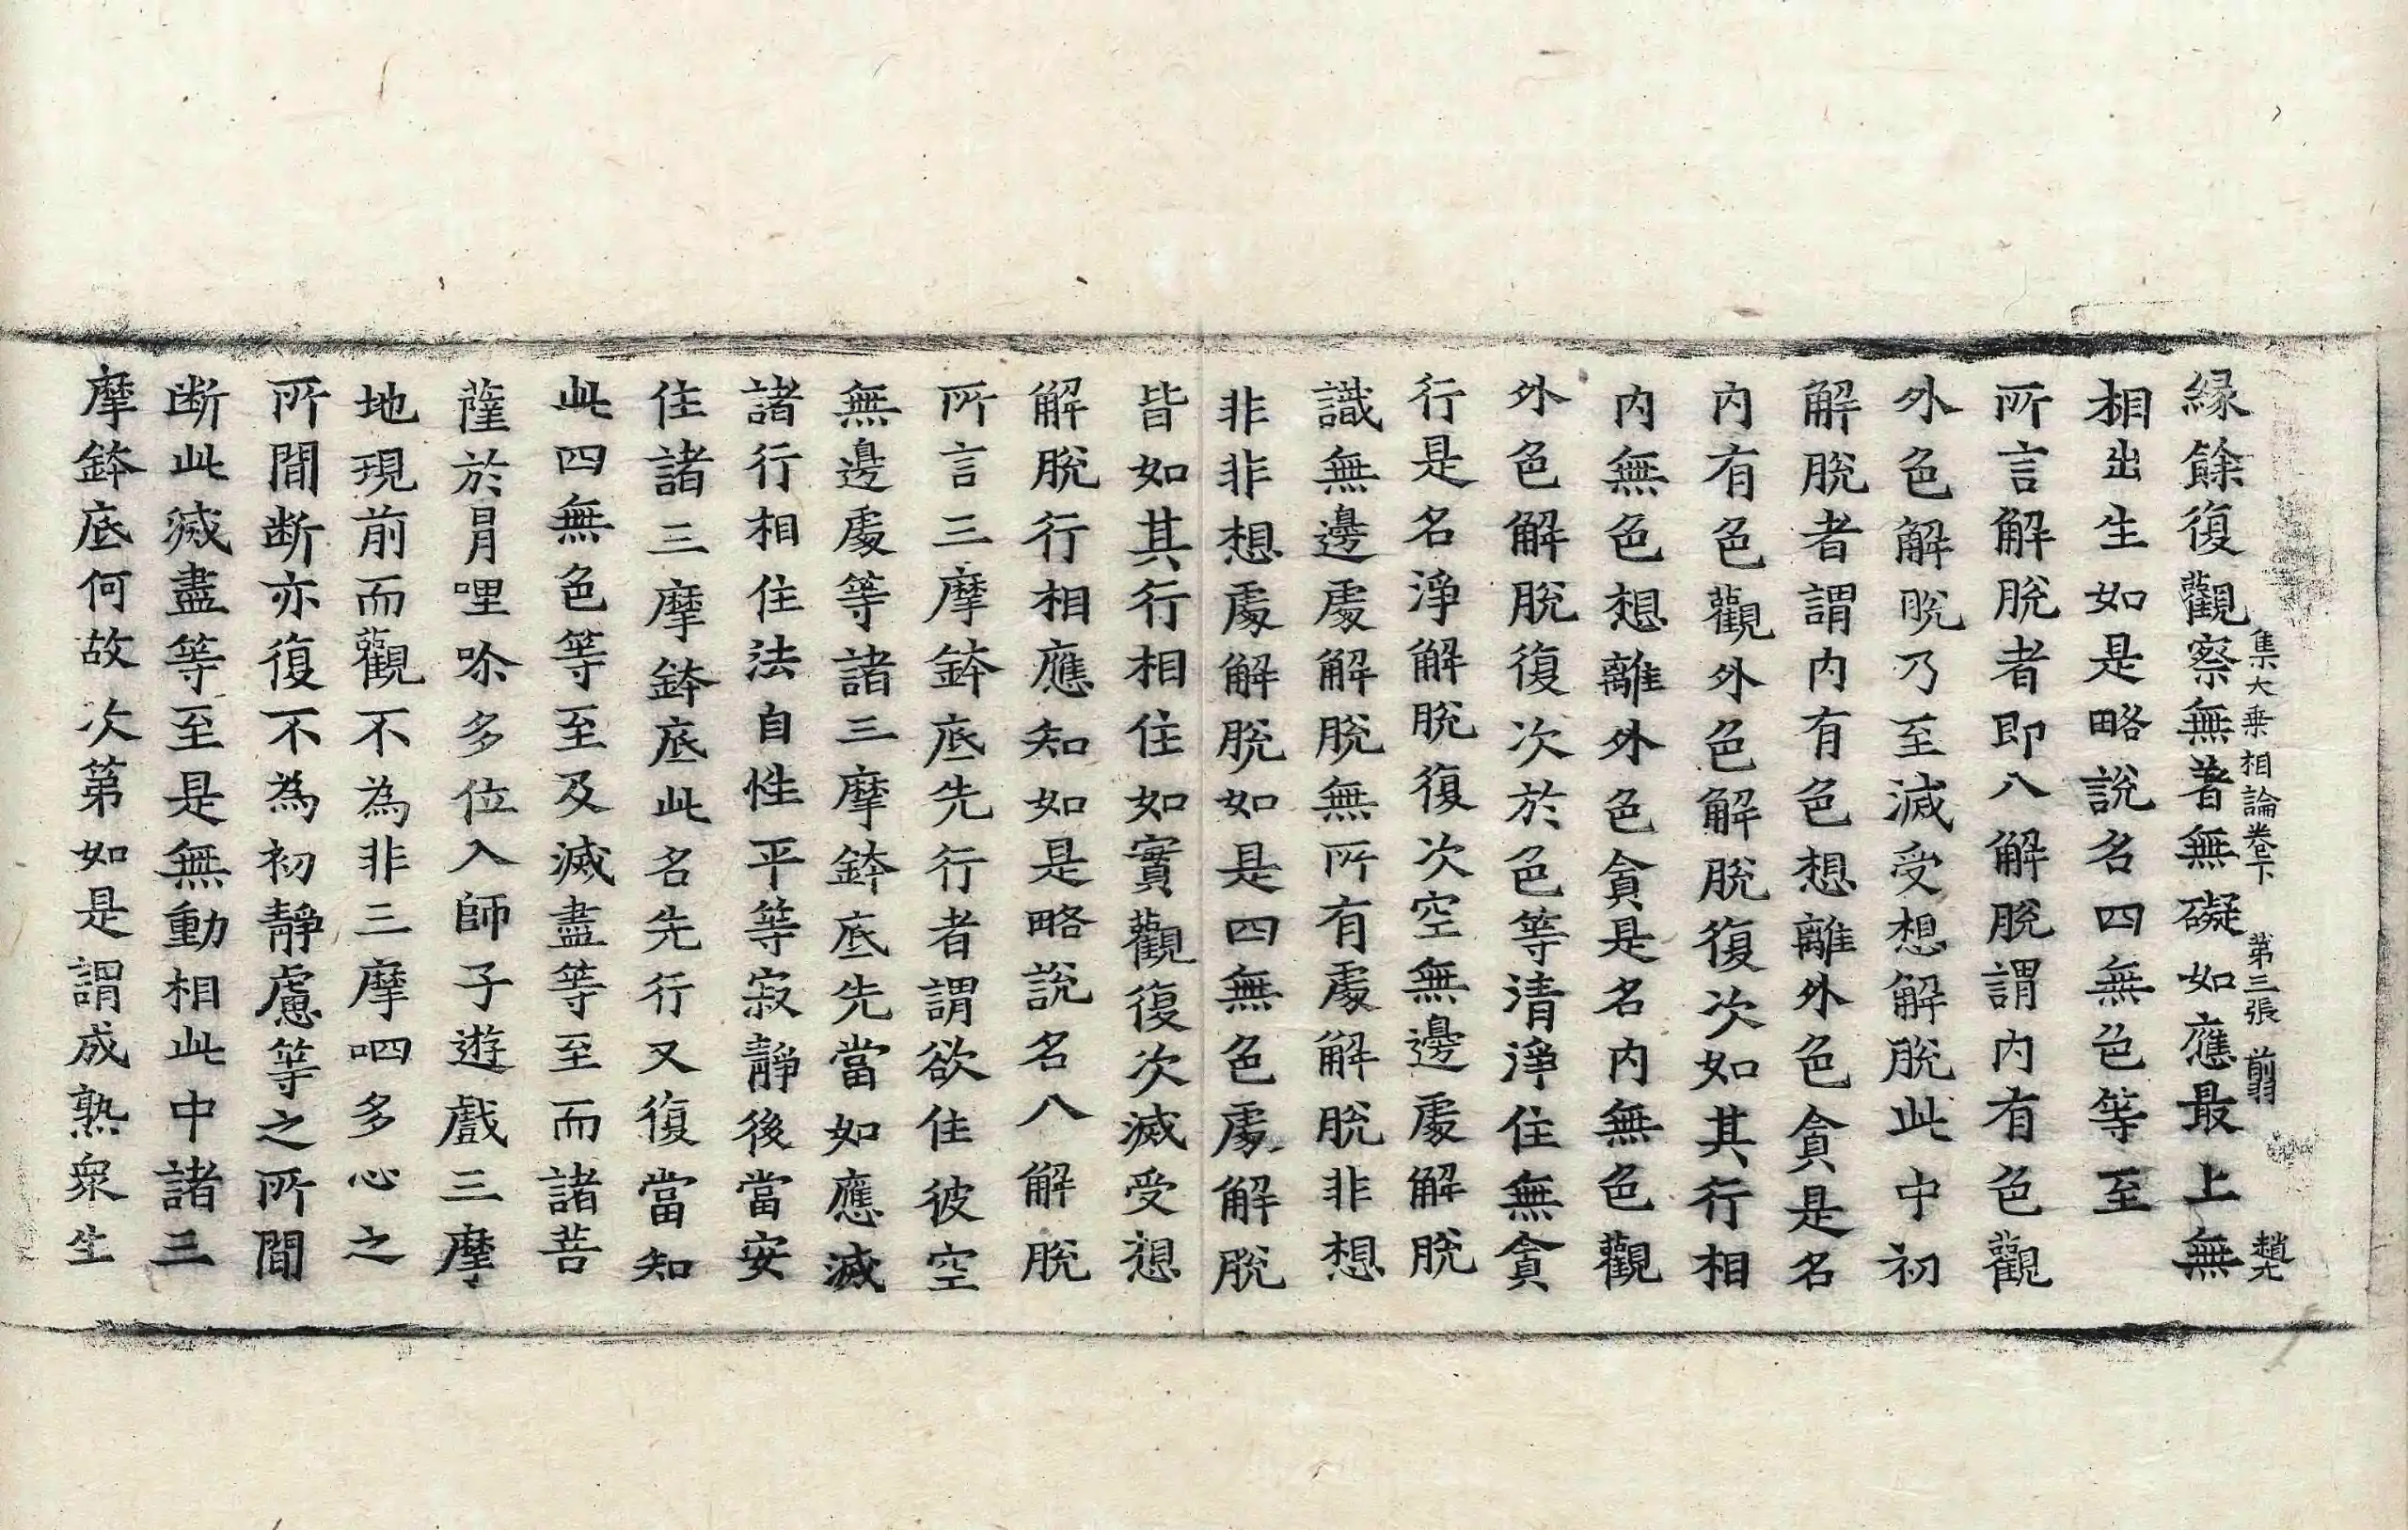 集大乗相論卷下 第三張 翦 趙尤
縁餘復觀察無著無礙如應最上無
相出生如是略說名四無色等至
所言解脫者即八解脫謂内有色觀
外色解脫乃至滅受想解脫此中初
解脫者謂内有色想離外色貪是名
内有色觀外色解脫復次如其行相
内無色想離外色貪是名内無色觀
外色解脫復次於色等清淨住無貪
行是名淨解脫復次空無邊處解脫
識無邊處解脫無所有處解脫非想
非非想處解脫如是四無色處解脫
皆如其行相住如實觀復次滅受想
解脫行相應知如是略說名八解脫
所言三摩鉢底先行者謂欲住彼空
無邊處等諸三摩鉢底先當如應滅
諸行相住法自性平等寂靜後當安
住諸三摩鉢底此名先行又復當知
此四無色等至及滅盡等至而諸菩
薩於㬋哩吹多位入師子遊戲三摩
地現前而觀不為非三摩呬多心之
所間断亦復不為初靜慮等之所間
断此滅盡等至是無動相此中諸三
摩鉢底何故次第如是謂成熟衆生